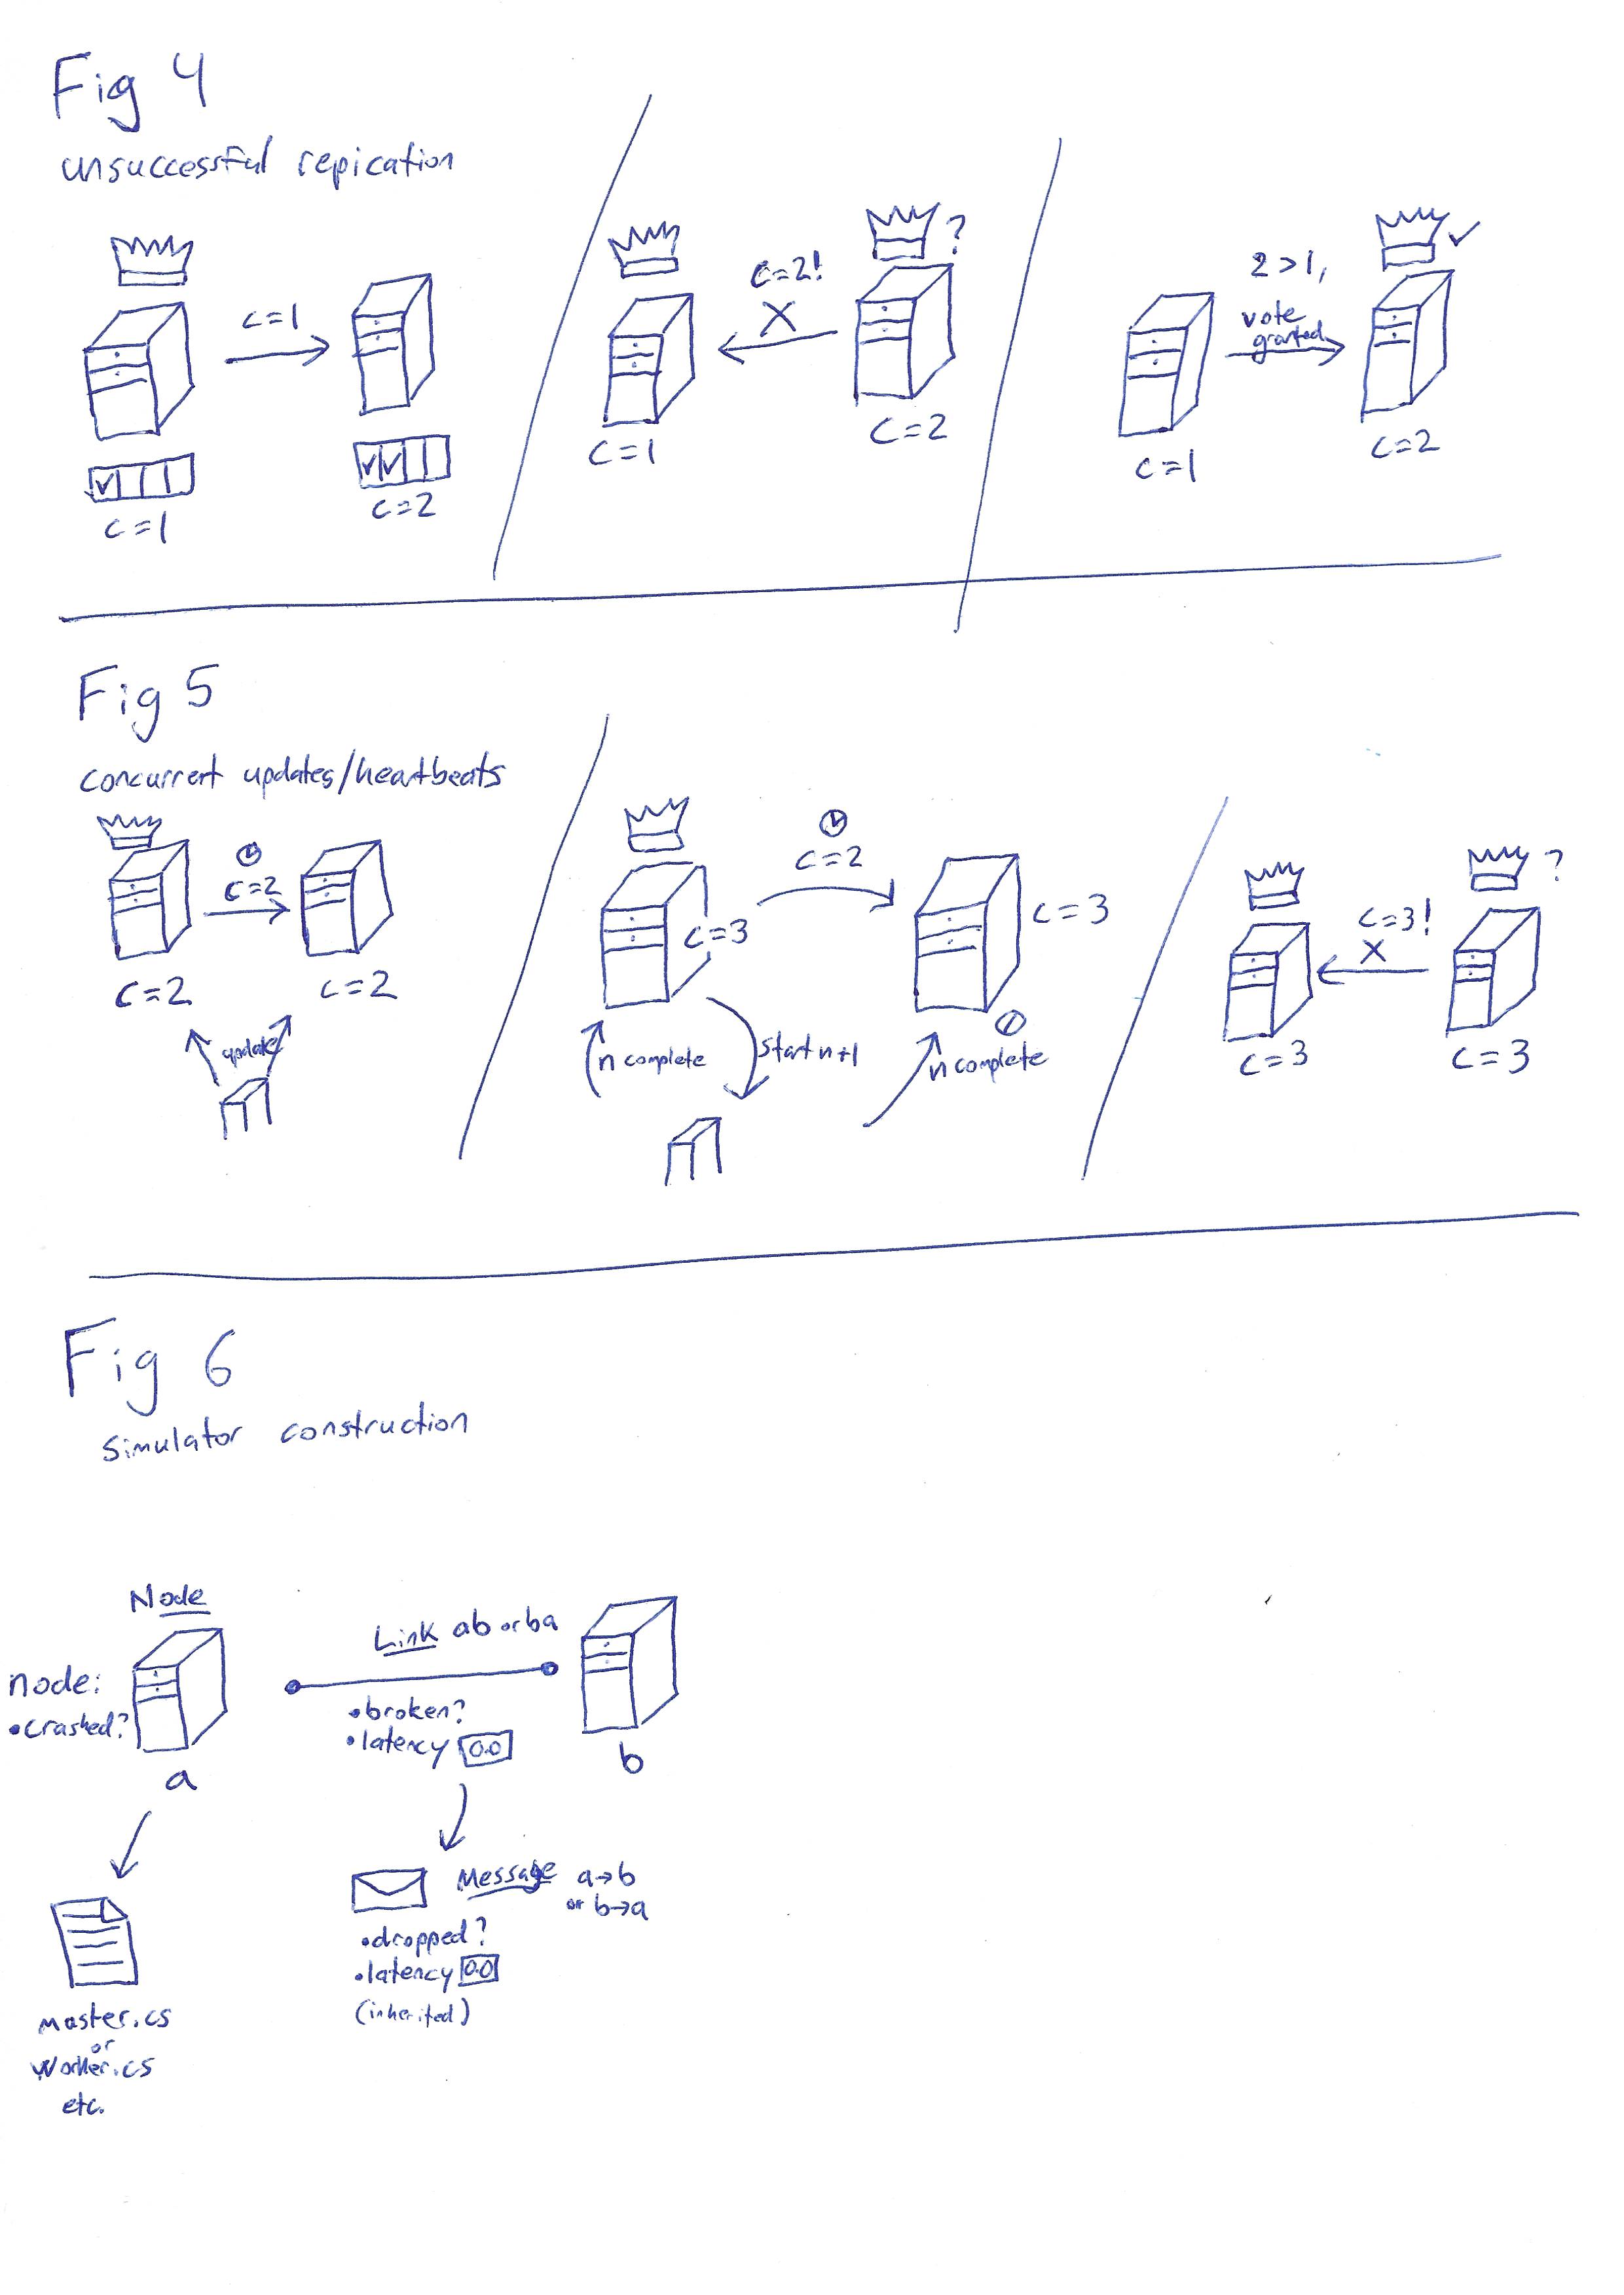 Fig 4
unsuccessful repication
c=1
c=1
c=2
c=2!
X
?
c=1
c=2
2>1,
vote
granted
c=1
c=2
Fig 5
concurrent updates/heartbeats
c=2
c=2
c=2
update
c=2
c=3
c=3
n complete
start n+1
n complete
?
c=3!
X
c=3
c=3
Fig 6
simulator construction
Node
node:
•crashed?
a
Link ab or ba
•broken?
•latency 0.0
b
Message a→b
or b→a
•dropped?
•latency 0.0
(inherited)
master.cs
or
worker.cs
etc.